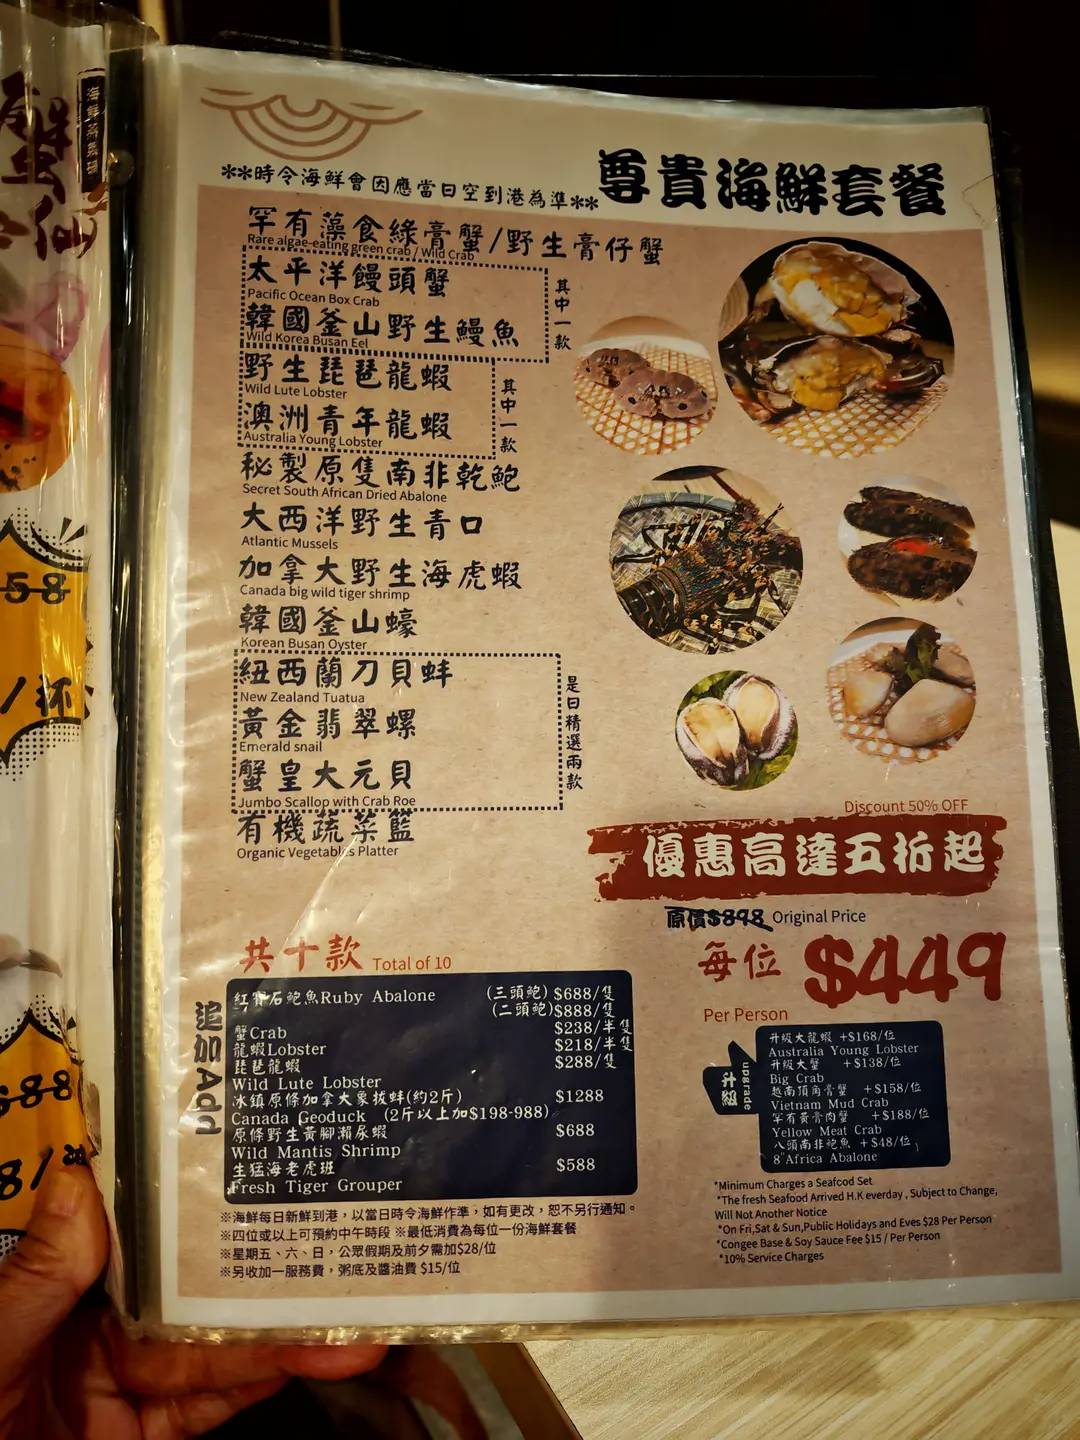 海鮮粥底鍋
蟹
仙
58
/杯
$88
8/
**時令海鮮會因應當日空到港為準**
尊貴海鮮套餐
罕有藻食綠膏蟹/野生膏仔蟹
Rare algae-eating green crab / Wild Crab
太平洋饅頭蟹
Pacific Ocean Box Crab
韓國釜山野生鰻魚
Wild Korea Busan Eel
其中一款
野生琵琶龍蝦
Wild Lute Lobster
澳洲青年龍蝦
Australia Young Lobster
其中一款
秘製原隻南非乾鮑
Secret South African Dried Abalone
大西洋野生青口
Atlantic Mussels
加拿大野生海虎蝦
Canada big wild tiger shrimp
韓國釜山蠔
Korean Busan Oyster
紐西蘭刀貝蚌
New Zealand Tuatua
黃金翡翠螺
Emerald snail
蟹皇大元貝
Jumbo Scallop with Crab Roe
是日精選兩款
有機蔬菜籃
Organic Vegetables Platter
Discount 50% OFF
優惠高達五折起
原價$898 Original Price
每位 $449
Per Person
共十款 Total of 10
追加Add
紅寶石鮑魚Ruby Abalone (三頭鮑) $688/隻
(二頭鮑)$888/隻
蟹Crab $238/半隻
龍蝦Lobster $218/半隻
琵琶龍蝦 $288/隻
Wild Lute Lobster
冰鎮原條加拿大象拔蚌(約2斤) $1288
Canada Geoduck (2斤以上加$198-988)
原條野生黃腳瀨尿蝦 $688
Wild Mantis Shrimp
生猛海老虎班 $588
Fresh Tiger Grouper
升級
upgrade
升級大龍蝦 +$168/位
Australia Young Lobster
升級大蟹 +$138/位
Big Crab
越南頂角膏蟹 +$158/位
Vietnam Mud Crab
罕有黃膏肉蟹 +$188/位
Yellow Meat Crab
八頭南非鮑魚 +$48/位
8"Africa Abalone
※海鮮每日新鮮到港，以當日時令海鮮作準，如有更改，恕不另行通知。
※四位或以上可預約中午時段 ※最低消費為每位一份海鮮套餐
※星期五、六、日，公眾假期及前夕需加$28/位
※另收加一服務費，粥底及醬油費 $15/位
*Minimum Charges a Seafood Set
*The fresh Seafood Arrived H.K everday , Subject to Change,
Will Not Another Notice
*On Fri,Sat & Sun,Public Holidays and Eves $28 Per Person
*Congee Base & Soy Sauce Fee $15 / Per Person
*10% Service Charges